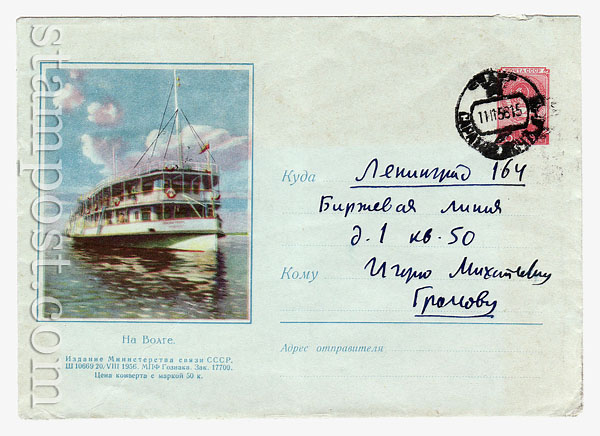 stampost.com
ПОЧТА СССР
Куда Ленинград 164
Биржевая линия
д. 1 кв. 50
Кому Игорю Михайловичу
Громову
Адрес отправителя
На Волге.
Издание Министерства связи СССР.
Ш 10669 20.VIII 1956. МПФ Гознака. Зак. 17709.
Цена конверта с маркой 50 к.